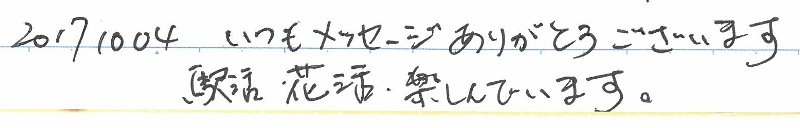 20171004 いつもメッセージありがとうございます
駅活・花活・楽しんでいます。